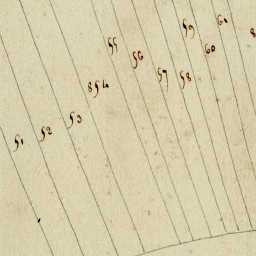 51
52
53
854
55
56
57
58
59
60
60
8